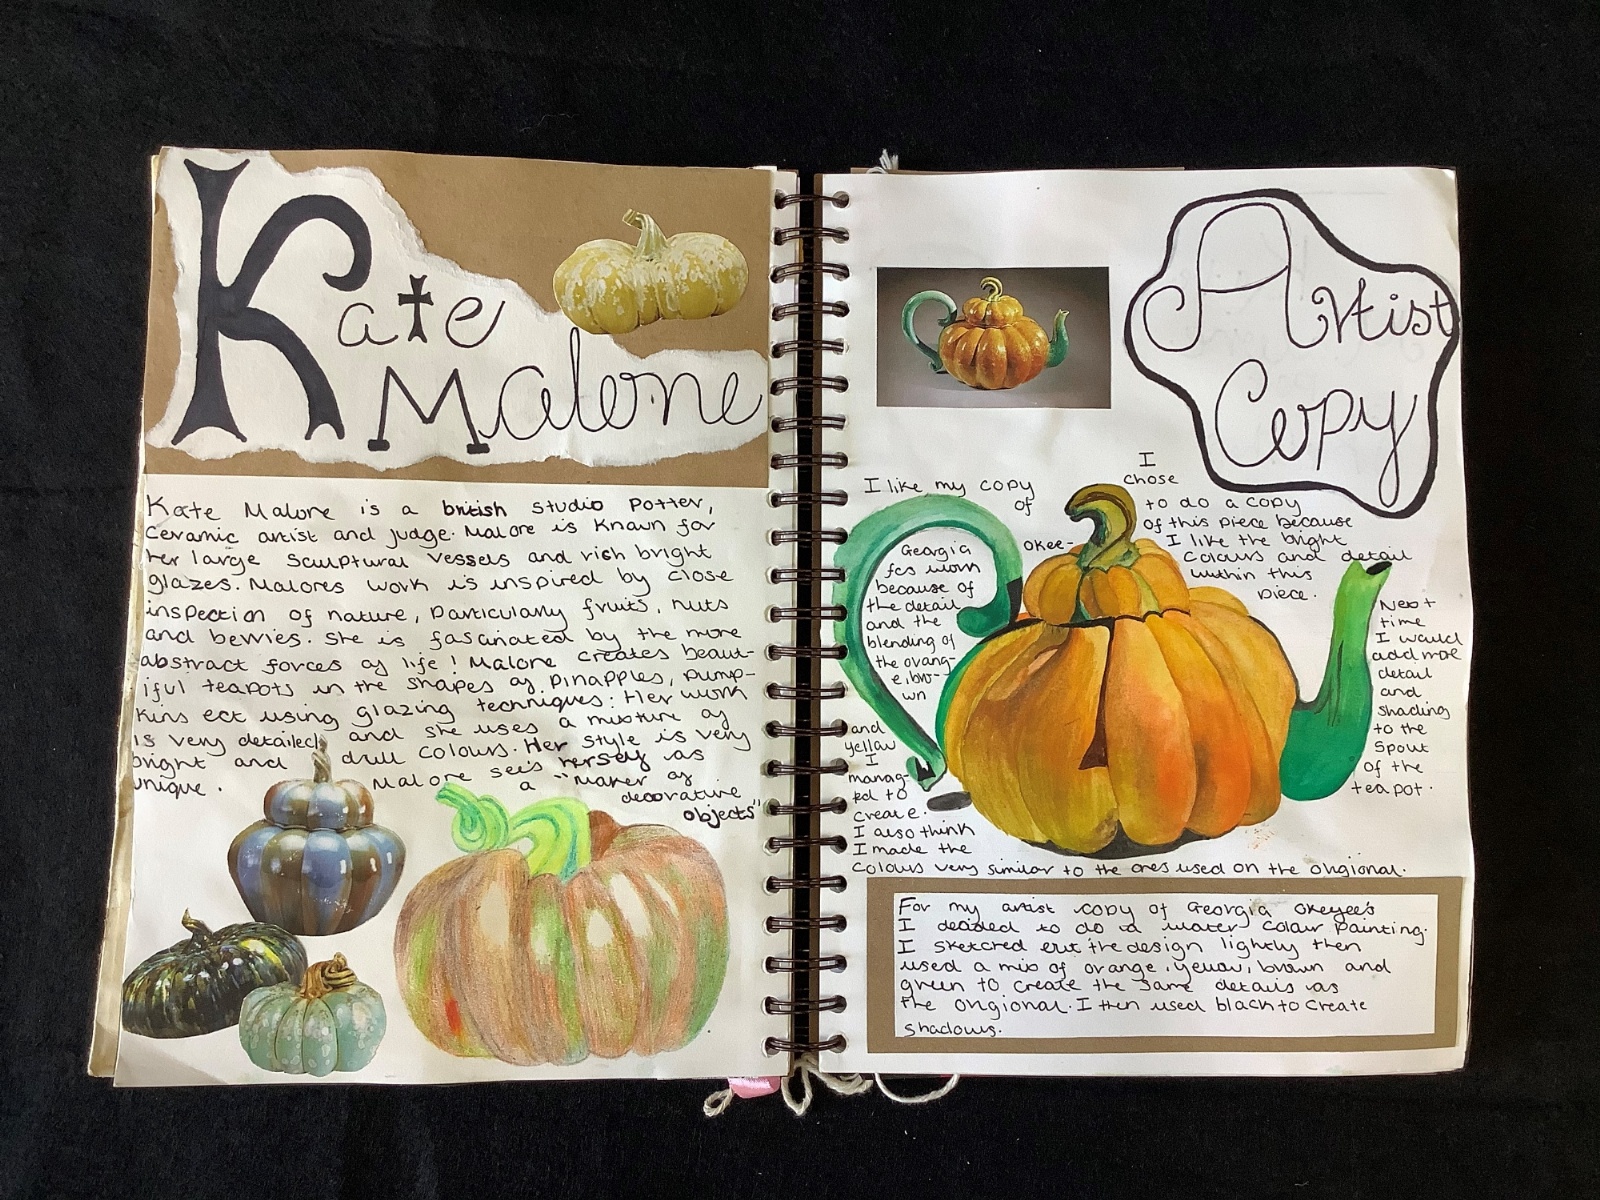 Kate
Malone
Kate Malone is a british studio Potter,
Ceramic artist and judge. Malore is Known for
her large Sculptural Vessels and rish bright
glazes. Malores work is inspired by close
inspection of nature, particularly fruits, nuts
and berries. She is fascinated by the more
abstract forces of life! Malone creates beaut-
iful teapots in the shapes of pinapples, pump-
kins ect using glazing techniques. Her work
is very detailed and she uses a mixture of
bright and drull colours. Her style is very
unique. Malore sees herself as
a "Maker of
decorative
objects"
Artist
Copy
I like my copy
of
Georgia
Okee-
fes work
because of
the detail
and the
blending of
the orang-
e, bro-
wn
and
yellow
I
manag-
ed to
create.
I also think
I made the
colours very similar to the ones used on the ohgional.
I
chose
to do a copy
of this piece because
I like the bright
colours and detail
within this
piece.
Next
time
I would
add more
detail
and
shading
to the
spout
of the
teapot.
For my artist copy of Georgia Okeyee's
I decided to do a water colour painting.
I sketched out the design lightly then
used a mix of orange, yellow, brown and
green to create the same details as
the ohgional. I then used black to create
shadows.